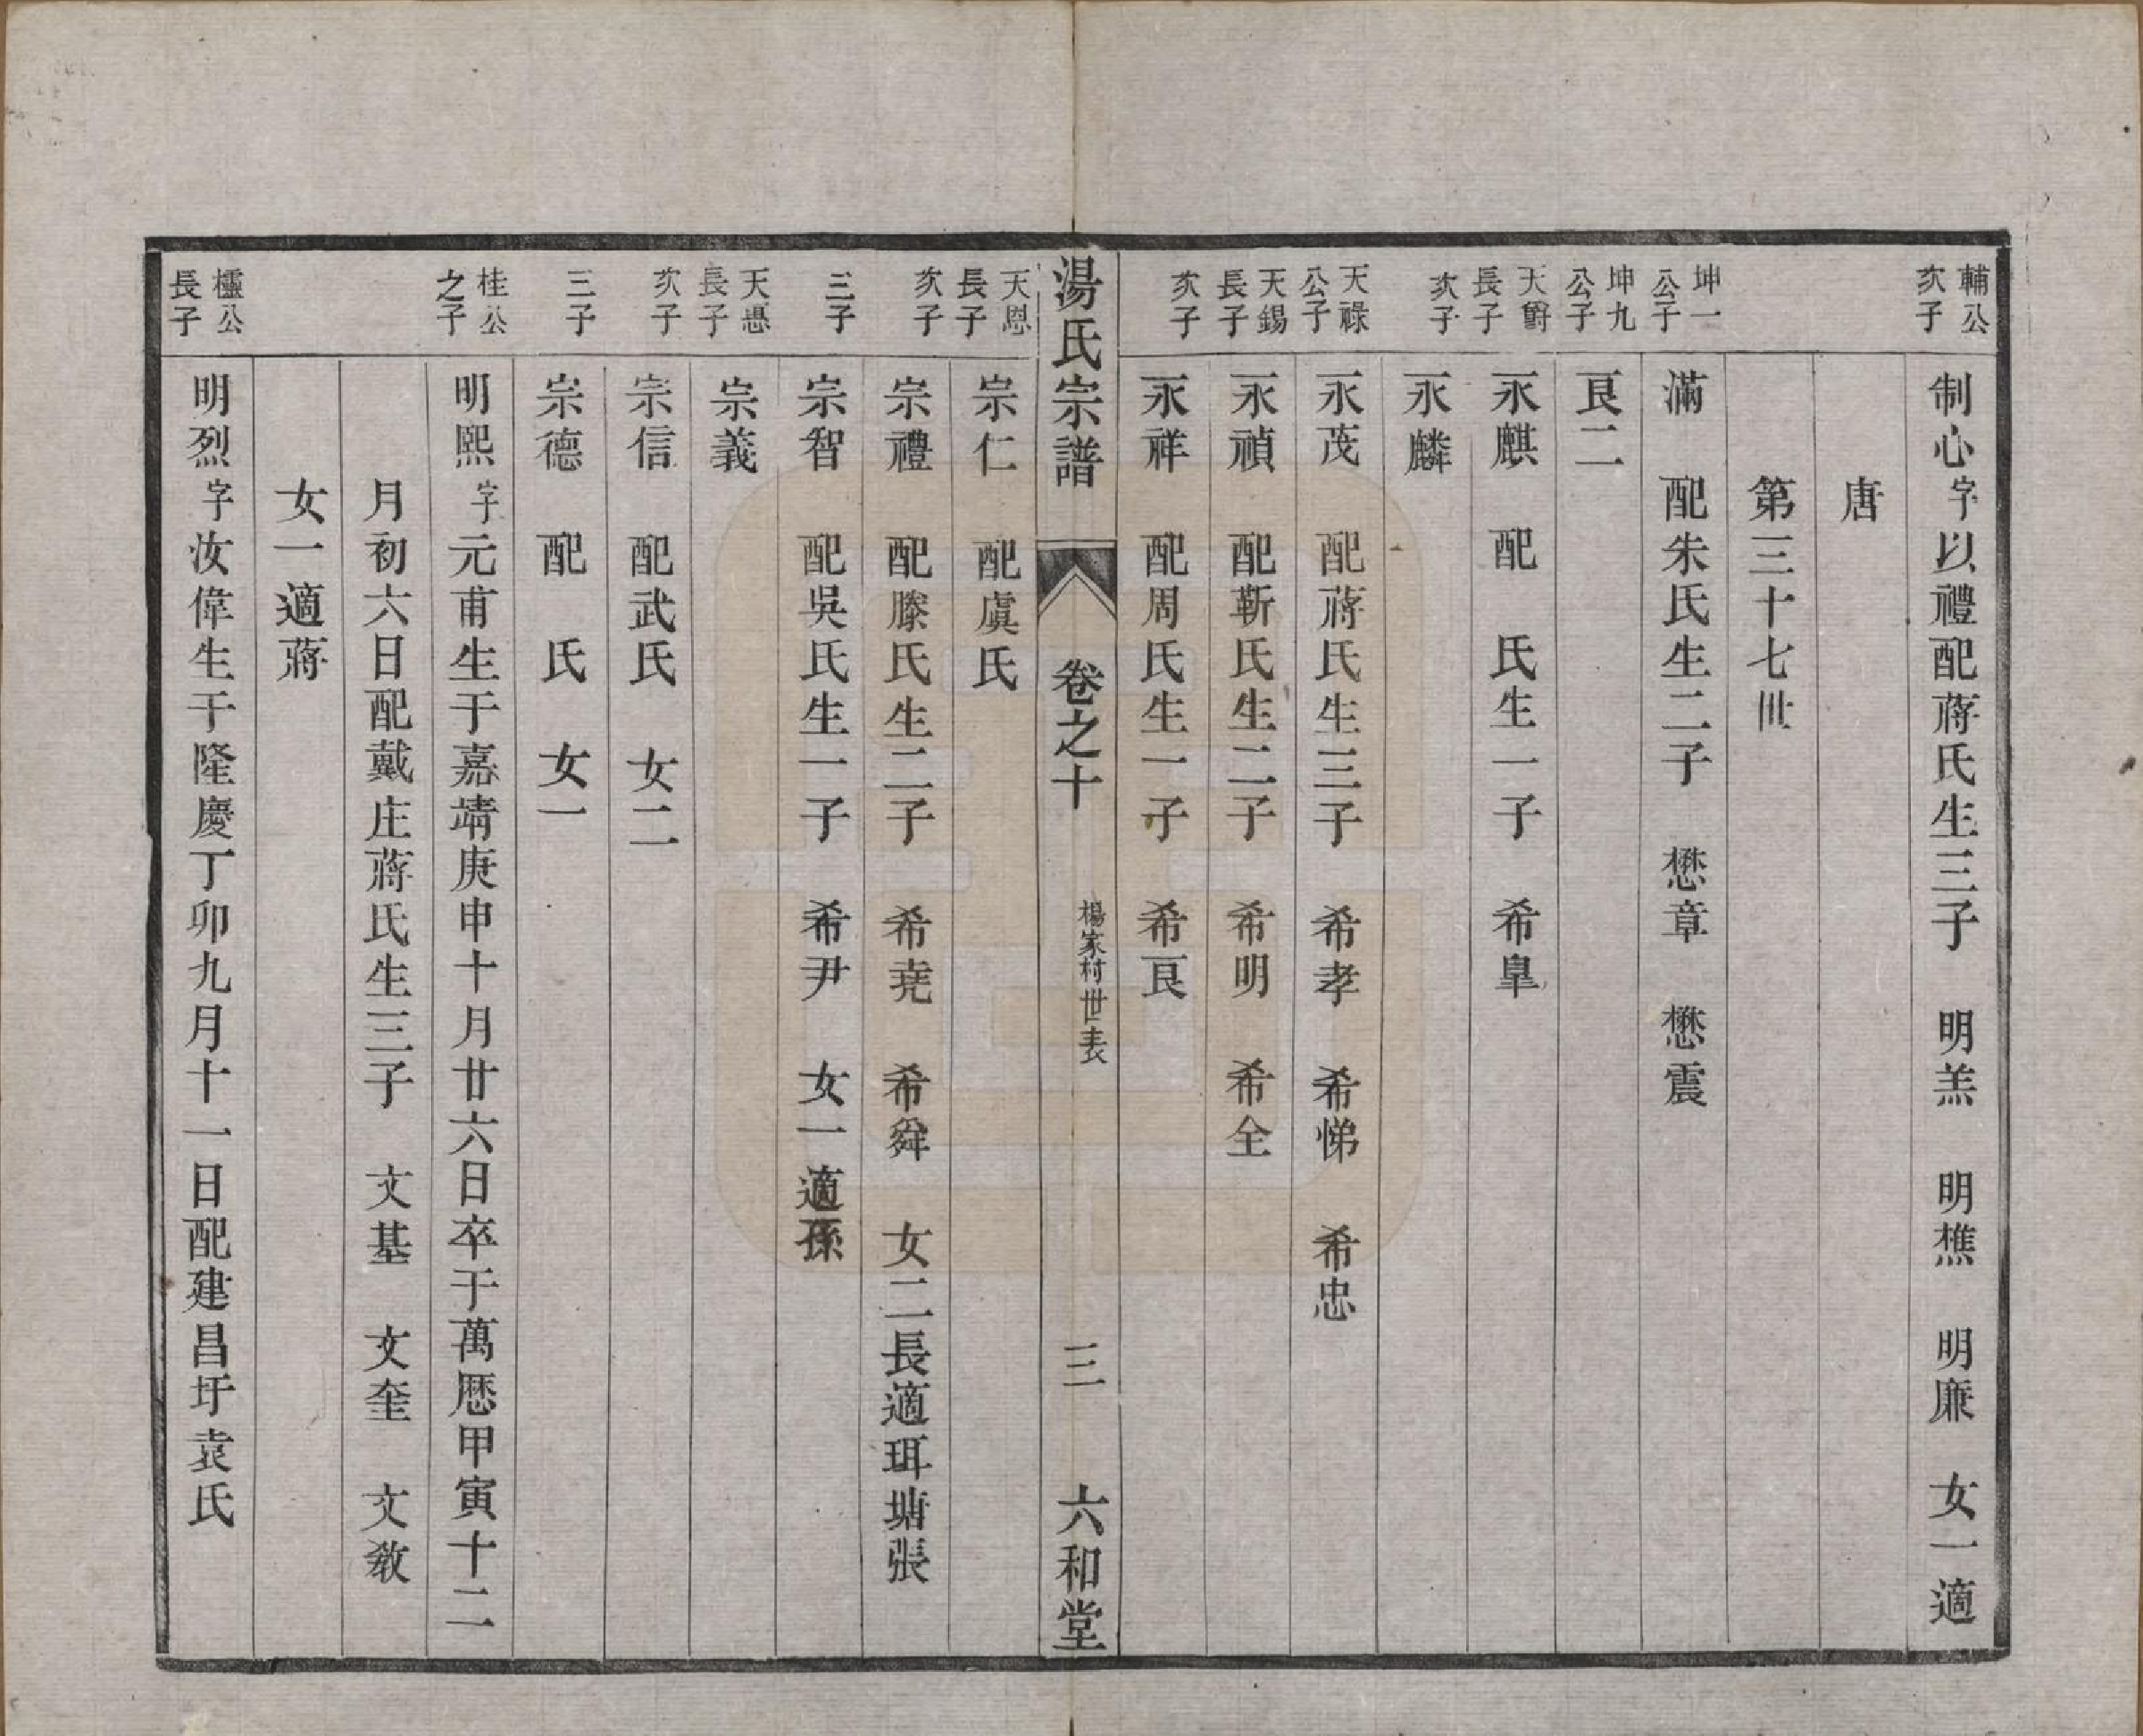 輔公次子
制心字以禮配蔣氏生三子　明羔　明樵　明廉　女一適
唐
第三十七世
坤一公子
滿　配朱氏生二子　懋章　懋震
坤九公子
艮二
天爵長子
永麒　配　氏生一子　希皐
次子
永麟
天祿公子
永茂　配蔣氏生三子　希孝　希悌　希忠
天錫長子
永禎　配靳氏生二子　希明　希全
次子
永祥　配周氏生一子　希艮
湯氏宗譜　卷之十　楊家村世表　三　六和堂
天恩長子
宗仁　配虞氏
次子
宗禮　配滕氏生二子　希堯　希舜　女二長適珥塘張
三子
宗智　配吳氏生一子　希尹　女一適孫
天惠長子
宗義
次子
宗信　配武氏　女二
三子
宗德　配　氏　女一
桂公之子
明熙字元甫生于嘉靖庚申十月廿六日卒于萬厯甲寅十二
月初六日配戴庄蔣氏生三子　文基　文奎　文敎
女一適蔣
櫺公長子
明烈字汝偉生于隆慶丁卯九月十一日配建昌圩袁氏